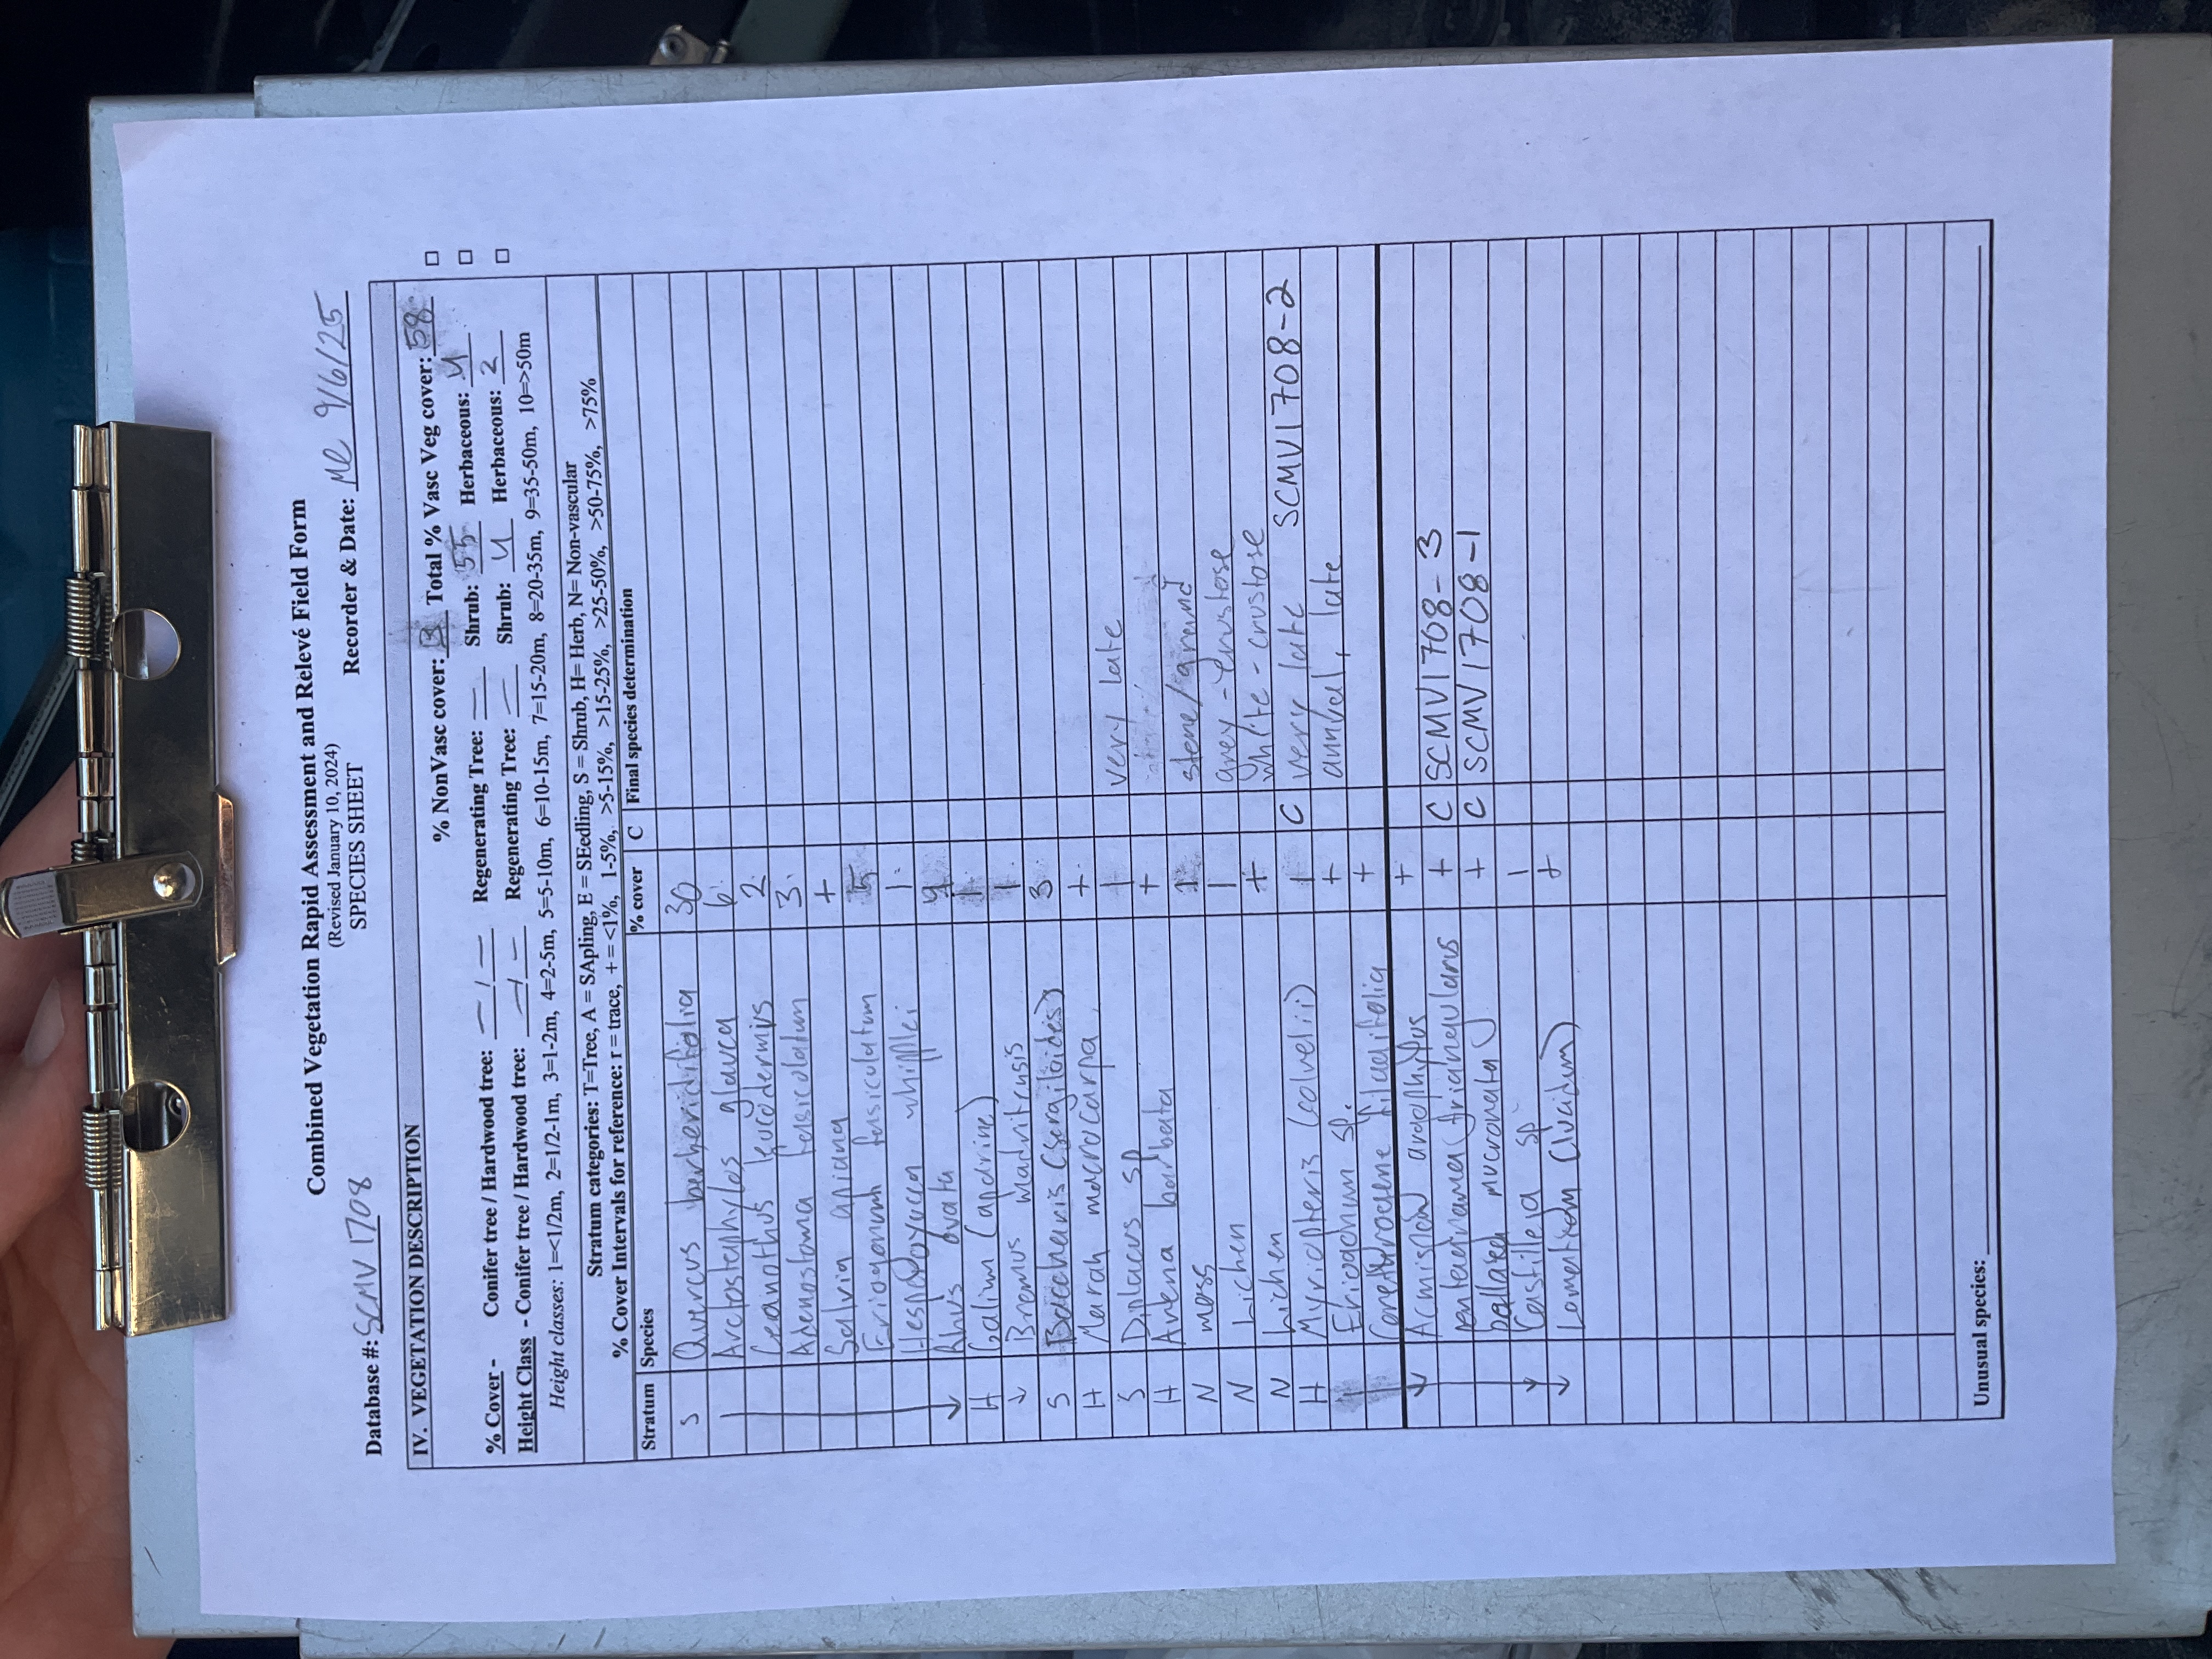 Combined Vegetation Rapid Assessment and Relevé Field Form
(Revised January 10, 2024)
SPECIES SHEET
Database #: SCMV1708 Recorder & Date: 9/6/25
IV. VEGETATION DESCRIPTION
% NonVasc cover: Total % Vasc Veg cover: 58
% Cover - Conifer tree / Hardwood tree: – / – Regenerating Tree: – Shrub: 55 Herbaceous: 4
Height Class - Conifer tree / Hardwood tree: – / – Regenerating Tree: – Shrub: 4 Herbaceous: 2
Height classes: 1=<1/2m, 2=1/2-1m, 3=1-2m, 4=2-5m, 5=5-10m, 6=10-15m, 7=15-20m, 8=20-35m, 9=35-50m, 10=>50m
Stratum categories: T=Tree, A = SApling, E = SEedling, S = Shrub, H= Herb, N= Non-vascular
% Cover Intervals for reference: r = trace, + = <1%, 1-5%, >5-15%, >15-25%, >25-50%, >50-75%, >75%
Stratum Species % cover C Final species determination
S Quercus berberidifolia 30
Arctostaphylos glauca 6
Ceanothus leucodermis 2
Adenostoma fasciculatum 3
Salvia apiana +
Eriogonum fasciculatum 5
Hesperoyucca whipplei 1
Rhus ovata
H Galium (aparine) 1
Bromus madritensis 1
S Baccharis (sergiloides) 3
H Marah macrocarpa +
S Diplacus sp 1 very late
H Avena barbata +
N moss 1 stems/ground
N Lichen 1 grey - crustose
N Lichen + white - crustose
H Myriopteris (covellei) 1 C very late SCMV1708-2
Eriogonum sp. + annual, late
Corethrogyne filaginifolia +
Acmispon argophyllus +
pentagramma (triangularis + C SCMV1708-3
pellaea mucronata + C SCMV1708-1
Castilleja sp 1
Lomatium (lucidum) +
Unusual species: